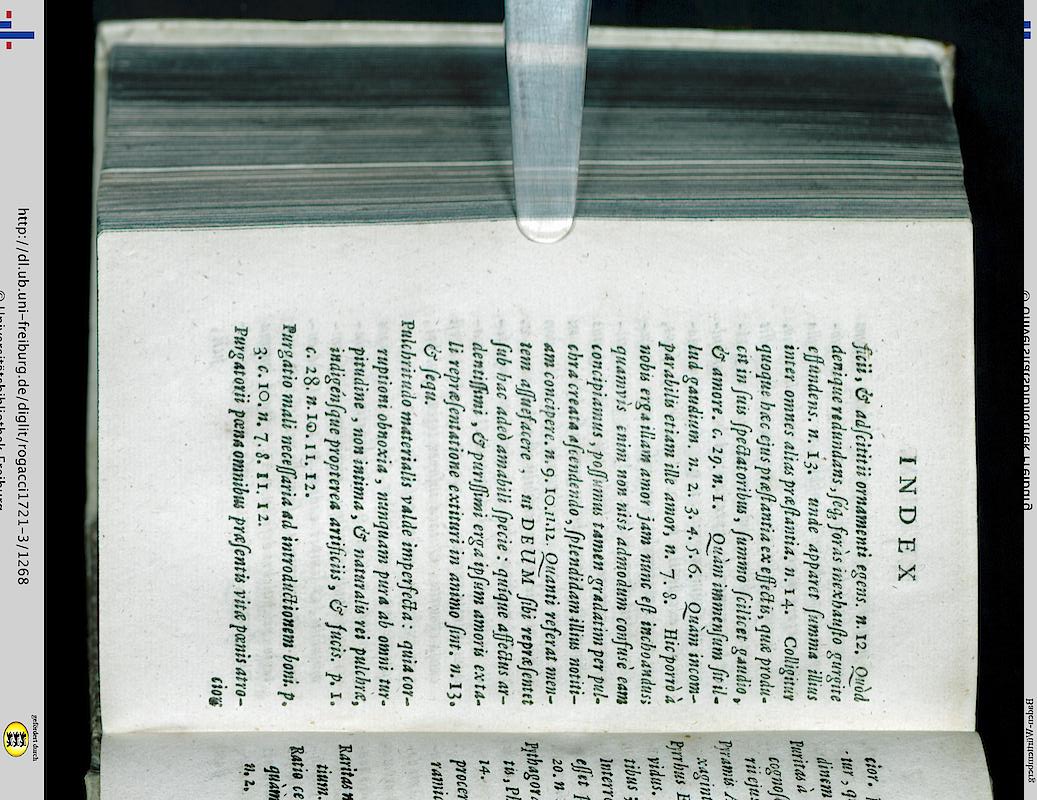 INDEX
ficii, & adscititii ornamenti egens. n. 12. Quòd
denique redundans, séq; foràs inexhausto gurgite
effundens. n. 13. unde apparet summa illius
inter omnes alias præstantia. n. 14. Colligitur
quoque hæc ejus præstantia ex effectis, quæ produ-
cit in suis spectatoribus, summo scilicet gaudio,
& amore. c. 29. n. 1. Quàm immensum sit il-
lud gaudium. n. 2. 3. 4. 5. 6. Quàm incom-
parabilis etiam ille amor, n. 7. 8. Hic porrò à
nobis erga illam amor jam nunc est inchoandus
quamvis enim non nisi admodum confusè eam
concipiamus, possumus tamen gradatim per pul-
chra creata ascendendo, splendidam illius notiti-
am concipere. n. 9. 10. 11. 12. Quanti referat men-
tem assuefacere, ut DEUM sibi repræsentet
sub hac adeò amabili specie: quíque affectus ar-
dentissimi, & purissimi erga ipsum amoris exta-
li repræsentatione extituri in animo sint. n. 13.
& sequ.
Pulchritudo materialis valde imperfecta. quia cor-
ruptioni obnoxia, nunquam pura ab omni tur-
pitudine, non intima, & naturalis rei pulchræ,
indigénsque propterea artificiis, & fucis. p. 1.
c. 28. n. 10. 11. 12.
Purgatio mali necessaria ad introductionem boni. p.
3. c. 10. n. 7. 8. 11. 12.
Purgatorii pœna omnibus præsentis vitæ pœnis atro-
cior.
cior.
tur, q
dinem
Puritas à
cognos
rii eju
Pyramis
xagint
Pyrrhus
vidus.
tibus
Interr
esset
20. n
Pythagor
tis. Pl
14.
procer
ramic
Raritas
tium.
Ratio ce
quàm
n. 2.
http://dl.ub.uni-freiburg.de/diglit/rogacci1721-3/1268
© Universitätsbibliothek Freiburg
gefördert durch
Baden-Württemberg